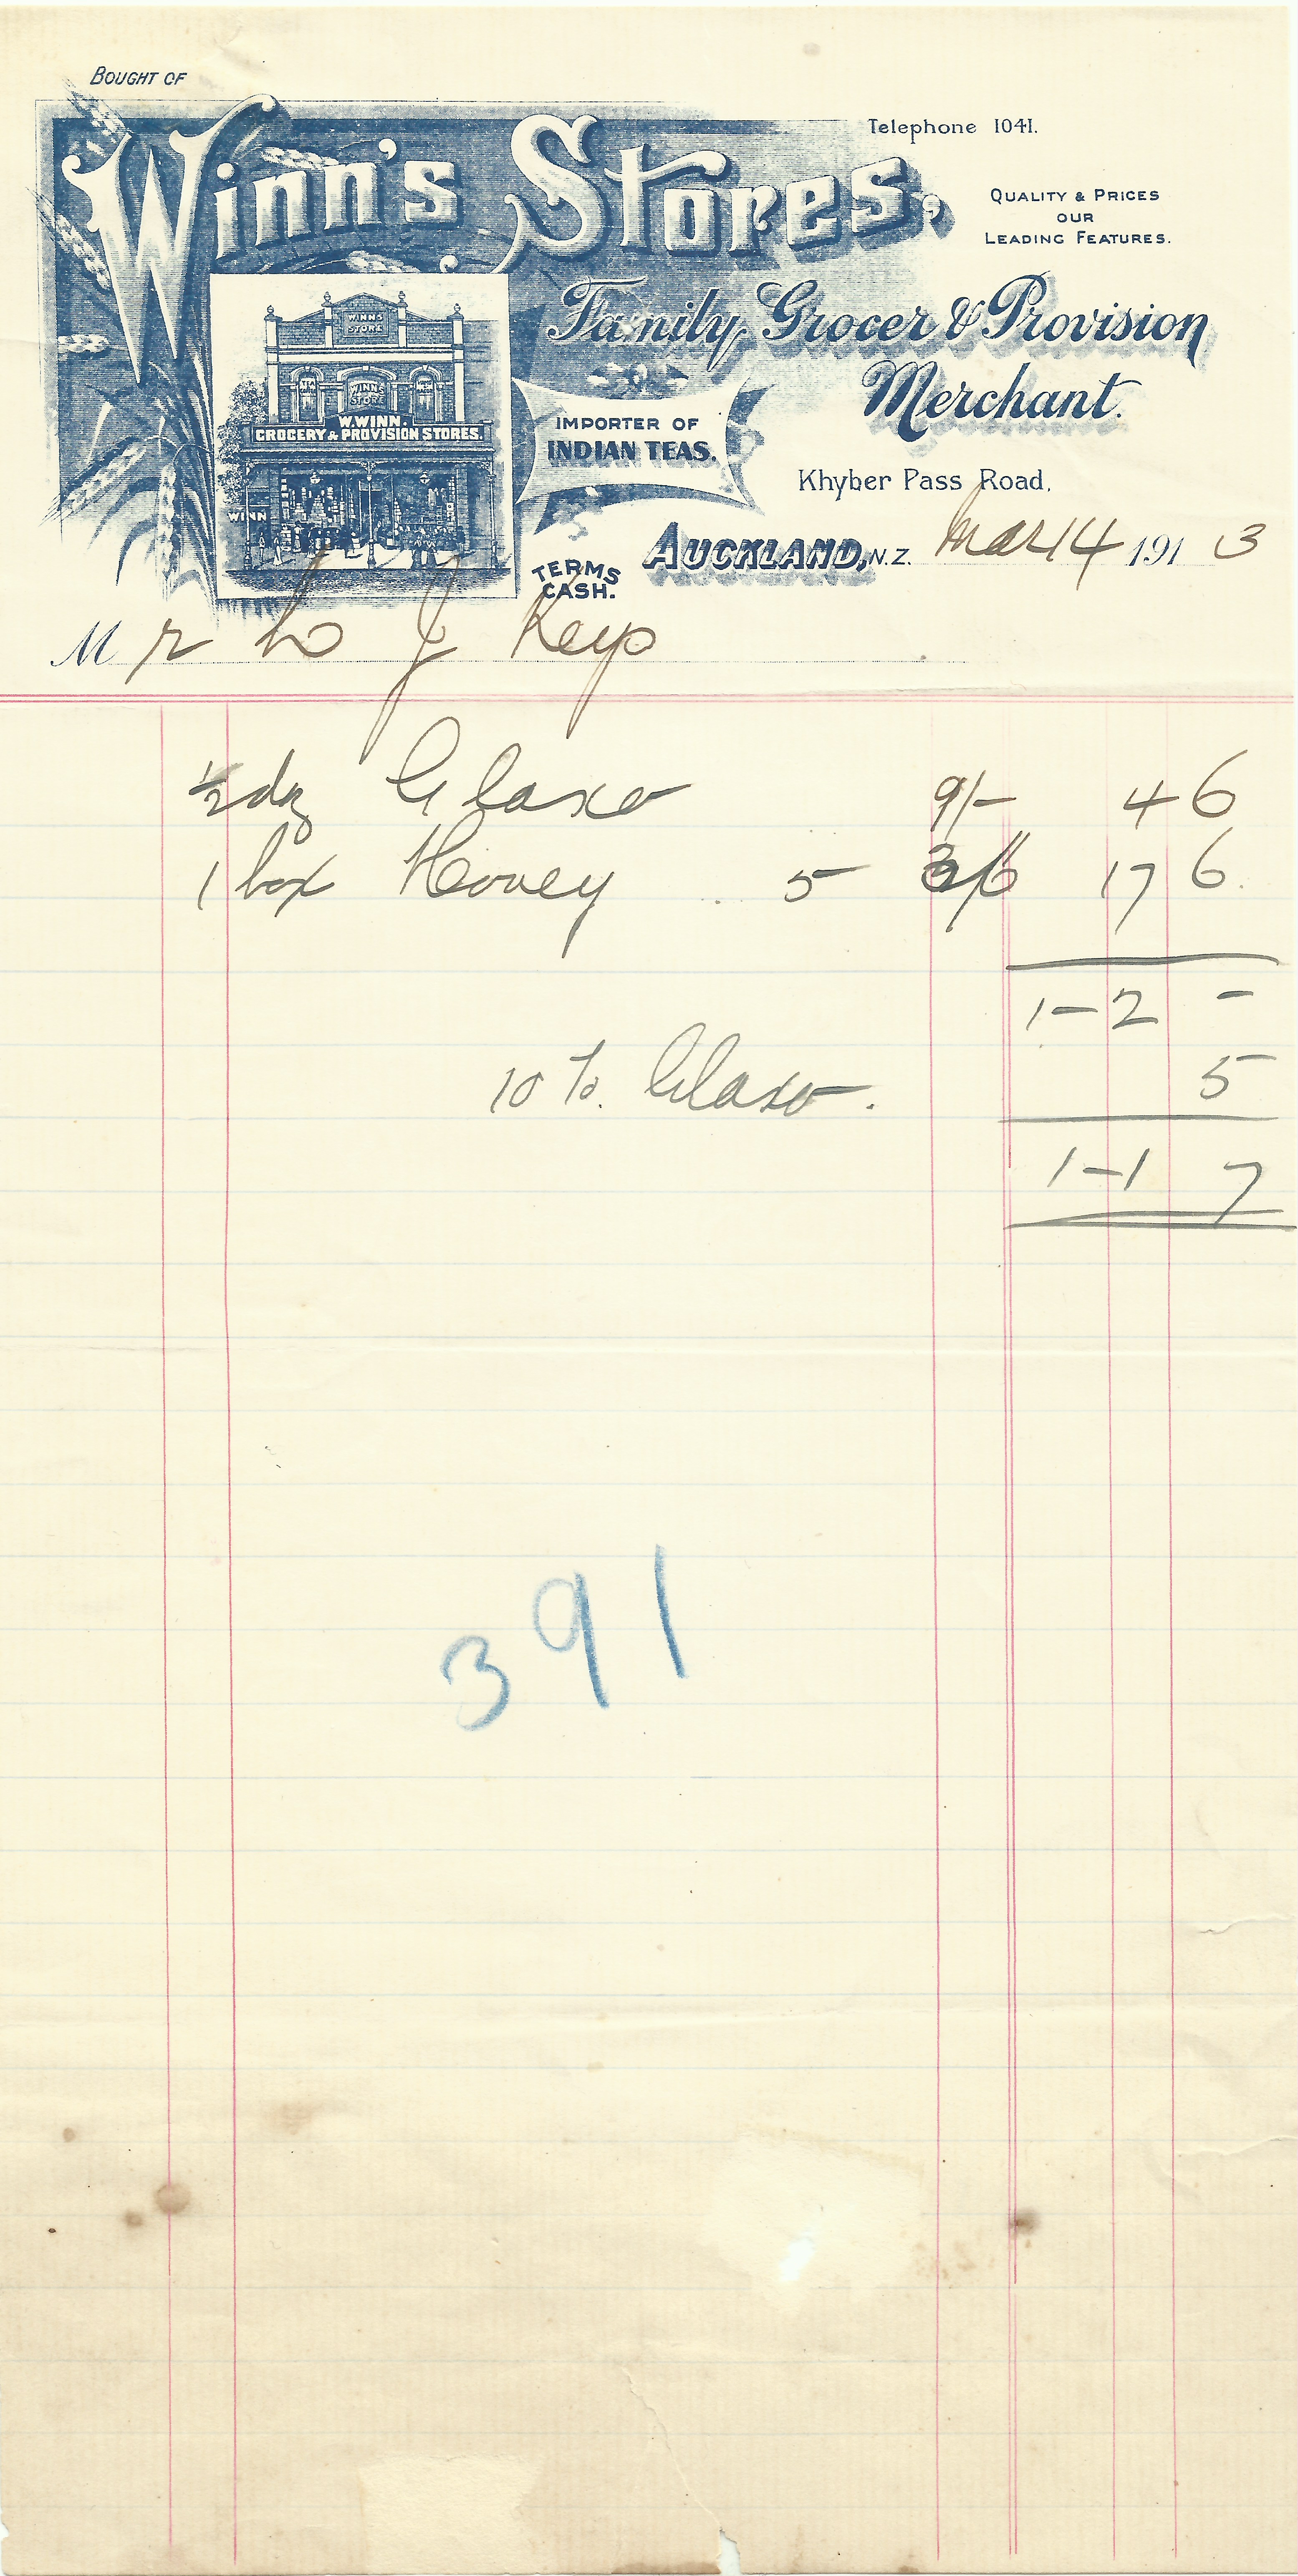 BOUGHT OF
Winn's Stores,
Telephone 1041.
QUALITY & PRICES
OUR
LEADING FEATURES.
Family Grocer & Provision
Merchant.
WINNS
STORE
WINNS
STORE
W. WINN.
GROCERY & PROVISION STORES.
WINN
IMPORTER OF
INDIAN TEAS.
Khyber Pass Road,
TERMS
CASH.
AUCKLAND, N.Z. Mar 14 1913
Mr L J Keys
½ dz Glaxo 9/- 4 6
1 box Honey 5 3/6 17 6
1-2 -
10 %. Glaxo. 5
1-1 7
391